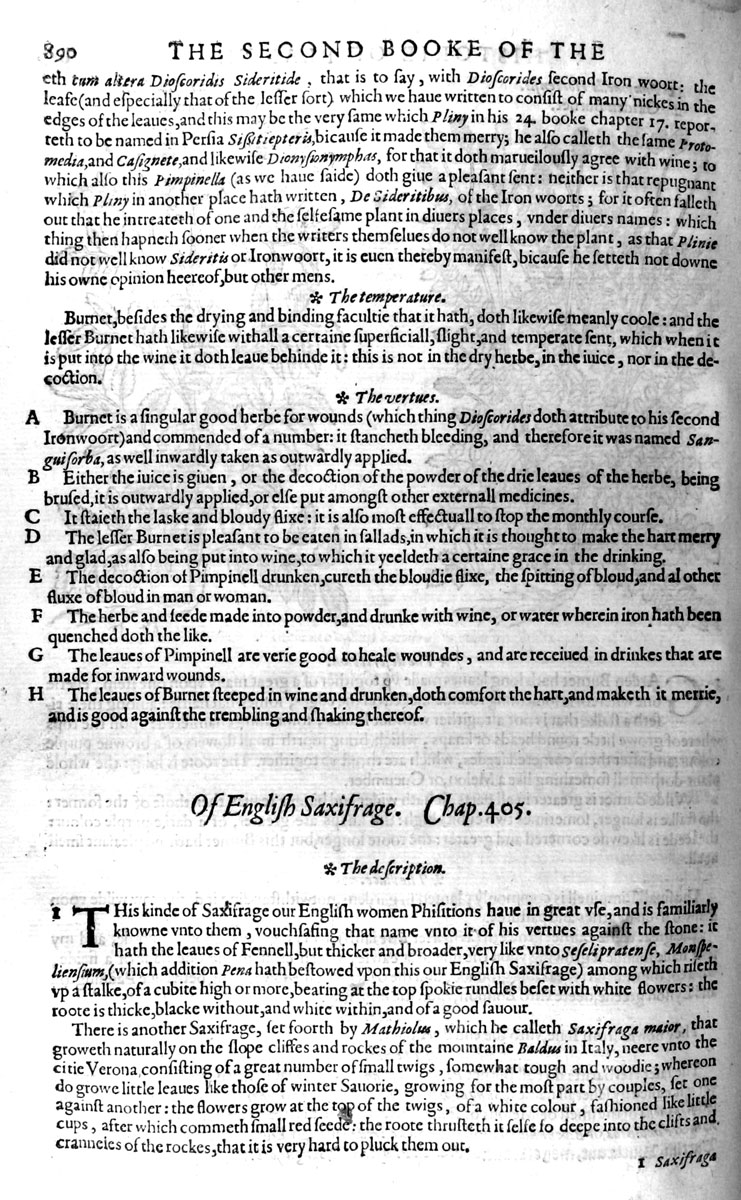 890 THE SECOND BOOKE OF THE
eth tum altera Dioſcoridis Sideritide, that is to ſay, with Dioſcorides ſecond Iron woort: the
leafe (and eſpecially that of the leſſer ſort) which we haue written to conſiſt of many nickes in the
edges of the leaues, and this may be the very ſame which Pliny in his 24. booke chapter 17. repor-
teth to be named in Perſia Siſſitiepteris, bicauſe it made them merry; he alſo calleth the ſame Proto-
media, and Caſignete, and likewiſe Dionyſionymphas, for that it doth marueilouſly agree with wine; to
which alſo this Pimpinella (as we haue ſaide) doth giue a pleaſant ſent: neither is that repugnant
which Pliny in another place hath written, De Sideritibus, of the Iron woorts; for it often falleth
out that he intreateth of one and the ſelfeſame plant in diuers places, vnder diuers names: which
thing then hapneth ſooner when the writers themſelues do not well know the plant, as that Plinie
did not well know Sideritis or Ironwoort, it is euen thereby manifeſt, bicauſe he ſetteth not downe
his owne opinion heereof, but other mens.
❋ The temperature.
Burnet, beſides the drying and binding facultie that it hath, doth likewiſe meanly coole: and the
leſſer Burnet hath likewiſe withall a certaine ſuperficiall, ſlight, and temperate ſent, which when it
is put into the wine it doth leaue behinde it: this is not in the dry herbe, in the iuice, nor in the de-
coction.
❋ The vertues.
A Burnet is a ſingular good herbe for wounds (which thing Dioſcorides doth attribute to his ſecond
Ironwoort) and commended of a number: it ſtancheth bleeding, and therefore it was named San-
guiſorba, as well inwardly taken as outwardly applied.
B Either the iuice is giuen, or the decoction of the powder of the drie leaues of the herbe, being
bruſed, it is outwardly applied, or elſe put amongſt other externall medicines.
C It ſtaieth the laske and bloudy flixe: it is alſo moſt effectuall to ſtop the monthly courſe.
D The leſſer Burnet is pleaſant to be eaten in ſallads, in which it is thought to make the hart merry
and glad, as alſo being put into wine, to which it yeeldeth a certaine grace in the drinking.
E The decoction of Pimpinell drunken, cureth the bloudie flixe, the ſpitting of bloud, and al other
fluxe of bloud in man or woman.
F The herbe and ſeede made into powder, and drunke with wine, or water wherein iron hath been
quenched doth the like.
G The leaues of Pimpinell are verie good to heale woundes, and are receiued in drinkes that are
made for inward wounds.
H The leaues of Burnet ſteeped in wine and drunken, doth comfort the hart, and maketh it merrie,
and is good againſt the trembling and ſhaking thereof.
Of Engliſh Saxifrage. Chap. 405.
❋ The deſcription.
1 THis kinde of Saxifrage our Engliſh women Phiſitions haue in great vſe, and is familiarly
knowne vnto them, vouchſafing that name vnto it of his vertues againſt the ſtone: it
hath the leaues of Fennell, but thicker and broader, very like vnto Seſeli pratenſe, Monſpe-
lienſium, (which addition Pena hath beſtowed vpon this our Engliſh Saxifrage) among which riſeth
vp a ſtalke, of a cubite high or more, bearing at the top ſpokie rundles beſet with white flowers: the
roote is thicke, blacke without, and white within, and of a good ſauour.
There is another Saxifrage, ſet foorth by Mathiolus, which he calleth Saxifraga maior, that
groweth naturally on the ſlope cliffes and rockes of the mountaine Baldus in Italy, neere vnto the
citie Verona, conſiſting of a great number of ſmall twigs, ſomewhat tough and woodie; whereon
do growe little leaues like thoſe of winter Sauorie, growing for the moſt part by couples, ſet one
againſt another: the flowers grow at the top of the twigs, of a white colour, faſhioned like little
cups, after which commeth ſmall red ſeede: the roote thruſteth it ſelfe ſo deepe into the clifts and
cranneies of the rockes, that it is very hard to pluck them out.
1 Saxifraga